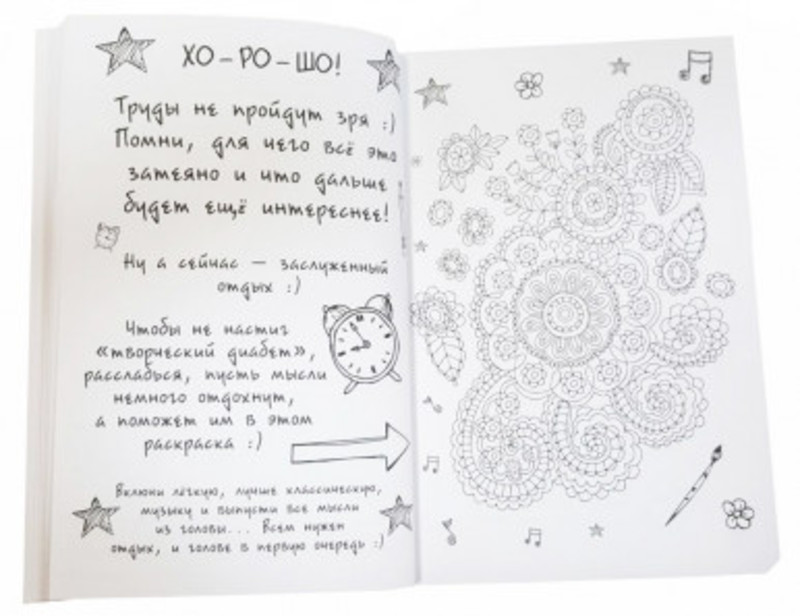 ХО-РО-ШО!
Труды не пройдут зря :)
Помни, для чего всё это
затеяно и что дальше
будет ещё интереснее!
Ну а сейчас — заслуженный
отдых :)
Чтобы не настиг
«творческий диабет»,
расслабься, пусть мысли
немного отдохнут,
а поможет им в этом
раскраска :)
Включи лёгкую, лучше классическую,
музыку и выпусти все мысли
из головы... Всем нужен
отдых, и голове в первую очередь :)